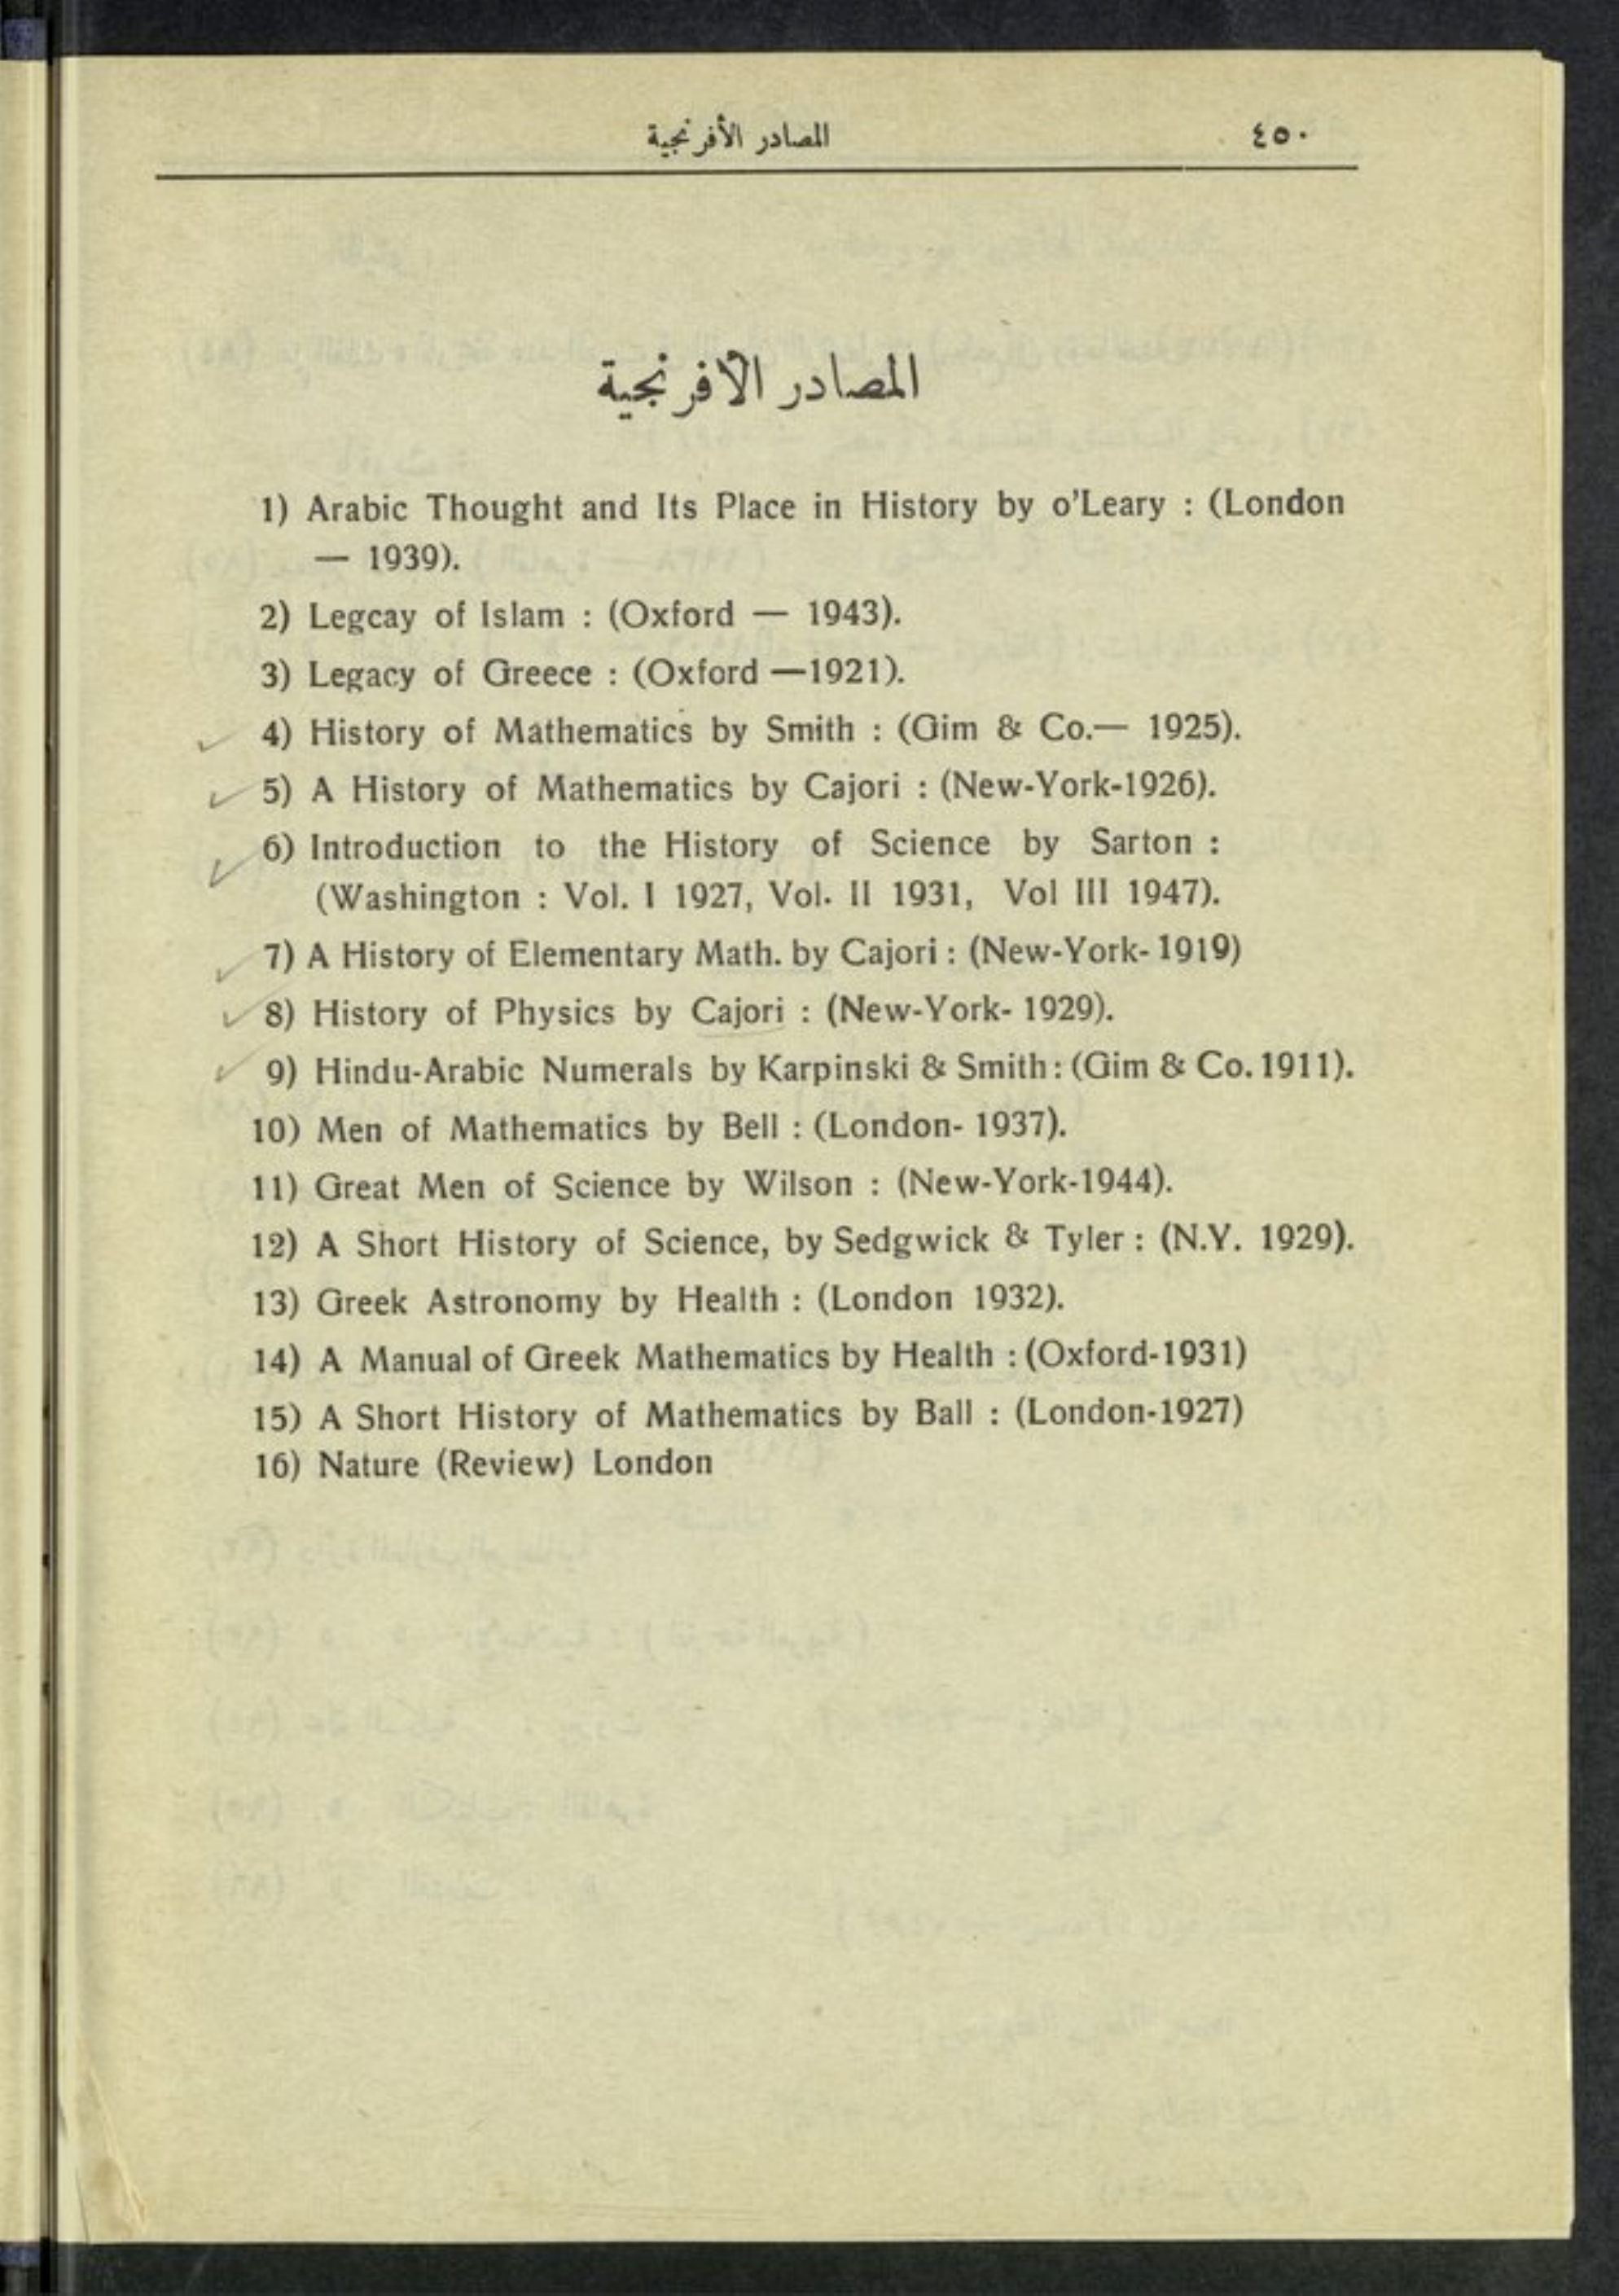 ٤٥٠ المصادر الأفرنجية
المصادر الأفرنجية
1) Arabic Thought and Its Place in History by o'Leary : (London
— 1939).
2) Legcay of Islam : (Oxford — 1943).
3) Legacy of Greece : (Oxford —1921).
4) History of Mathematics by Smith : (Gim & Co.— 1925).
5) A History of Mathematics by Cajori : (New-York-1926).
6) Introduction to the History of Science by Sarton :
(Washington : Vol. I 1927, Vol. II 1931, Vol III 1947).
7) A History of Elementary Math. by Cajori : (New-York- 1919)
8) History of Physics by Cajori : (New-York- 1929).
9) Hindu-Arabic Numerals by Karpinski & Smith : (Gim & Co. 1911).
10) Men of Mathematics by Bell : (London- 1937).
11) Great Men of Science by Wilson : (New-York-1944).
12) A Short History of Science, by Sedgwick & Tyler : (N.Y. 1929).
13) Greek Astronomy by Health : (London 1932).
14) A Manual of Greek Mathematics by Health : (Oxford-1931)
15) A Short History of Mathematics by Ball : (London-1927)
16) Nature (Review) London